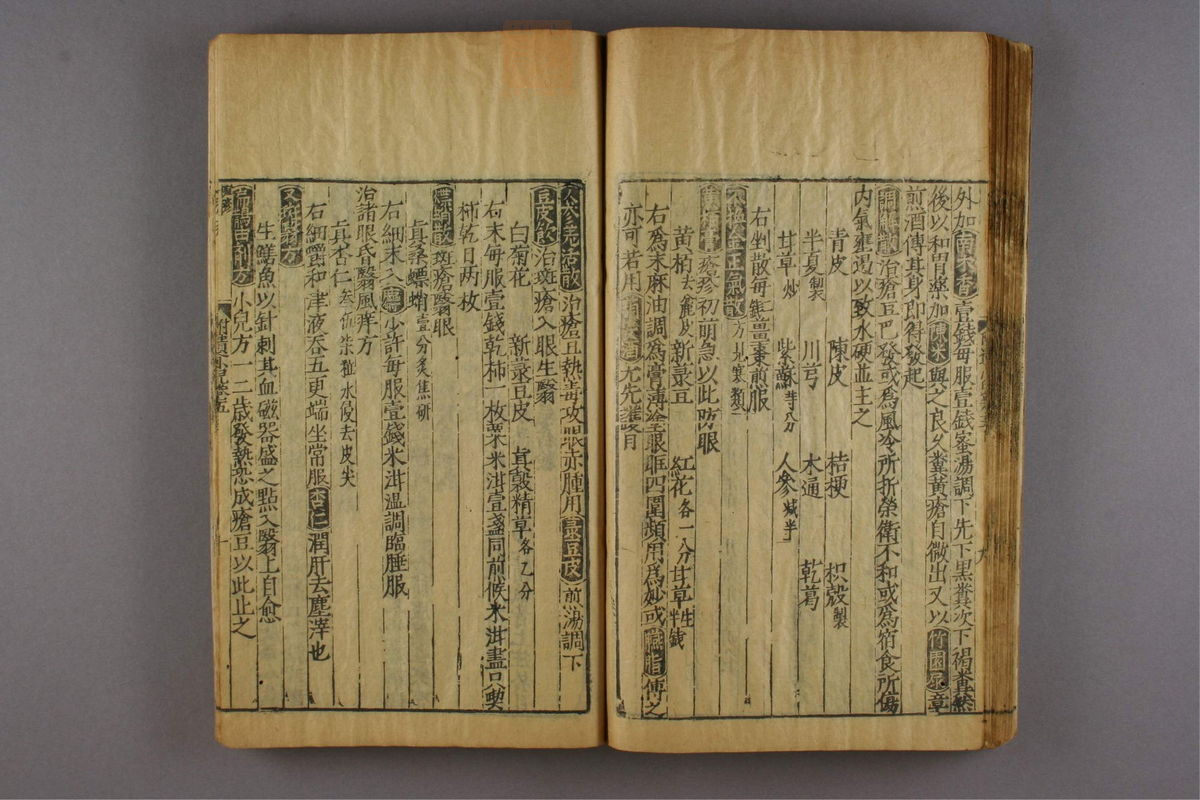 外加南木香壹錢每服壹錢蜜湯調下先下黑糞次下褐糞然
後以和胃藥加陳米與之良久糞黃瘡自微出又以
煎酒傅其身即得發起
調解散治瘡豆已發或為風冷所折榮衛不和或為宿食所傷
內氣壅遏以致水硬並主之
青皮 陳皮 桔梗 枳殼製
半夏製 川芎 木通 乾葛
甘草炒 紫蘇 人參減半
右剉散每 薑棗煎服
不換金正氣散方見寒類
黃柏膏瘡疹初萌急以此防眼
黃柏去麄皮 新菉豆 紅花各一分 甘草生
右為末麻油調為膏薄塗眼眶四圍頻用為妙或臙脂傅之
亦可若用 尤先護目
人參羌活散治瘡豆熱毒攻眼赤腫用菉豆皮煎湯調下
豆皮飲治斑瘡入眼生翳
白菊花 新菉豆皮 真穀精草各乙分
右末每服壹錢乾柿一枚粟米泔壹盞同煎候米泔盡只喫
柿乾日兩枚
螵蛸散斑瘡翳眼
真桑螵蛸壹分炙焦研
右細末入麝少許每服壹錢米泔溫調臨睡服
治諸眼昏翳風痒方
真杏仁 水浸去皮尖
右細嚼和津液吞五更端坐常服杏仁潤肝去塵滓也
又斑翳方
生鱔魚以針刺其血磁器盛之點入翳上自愈
小兒方一二歲發熱恐成瘡豆以此止之